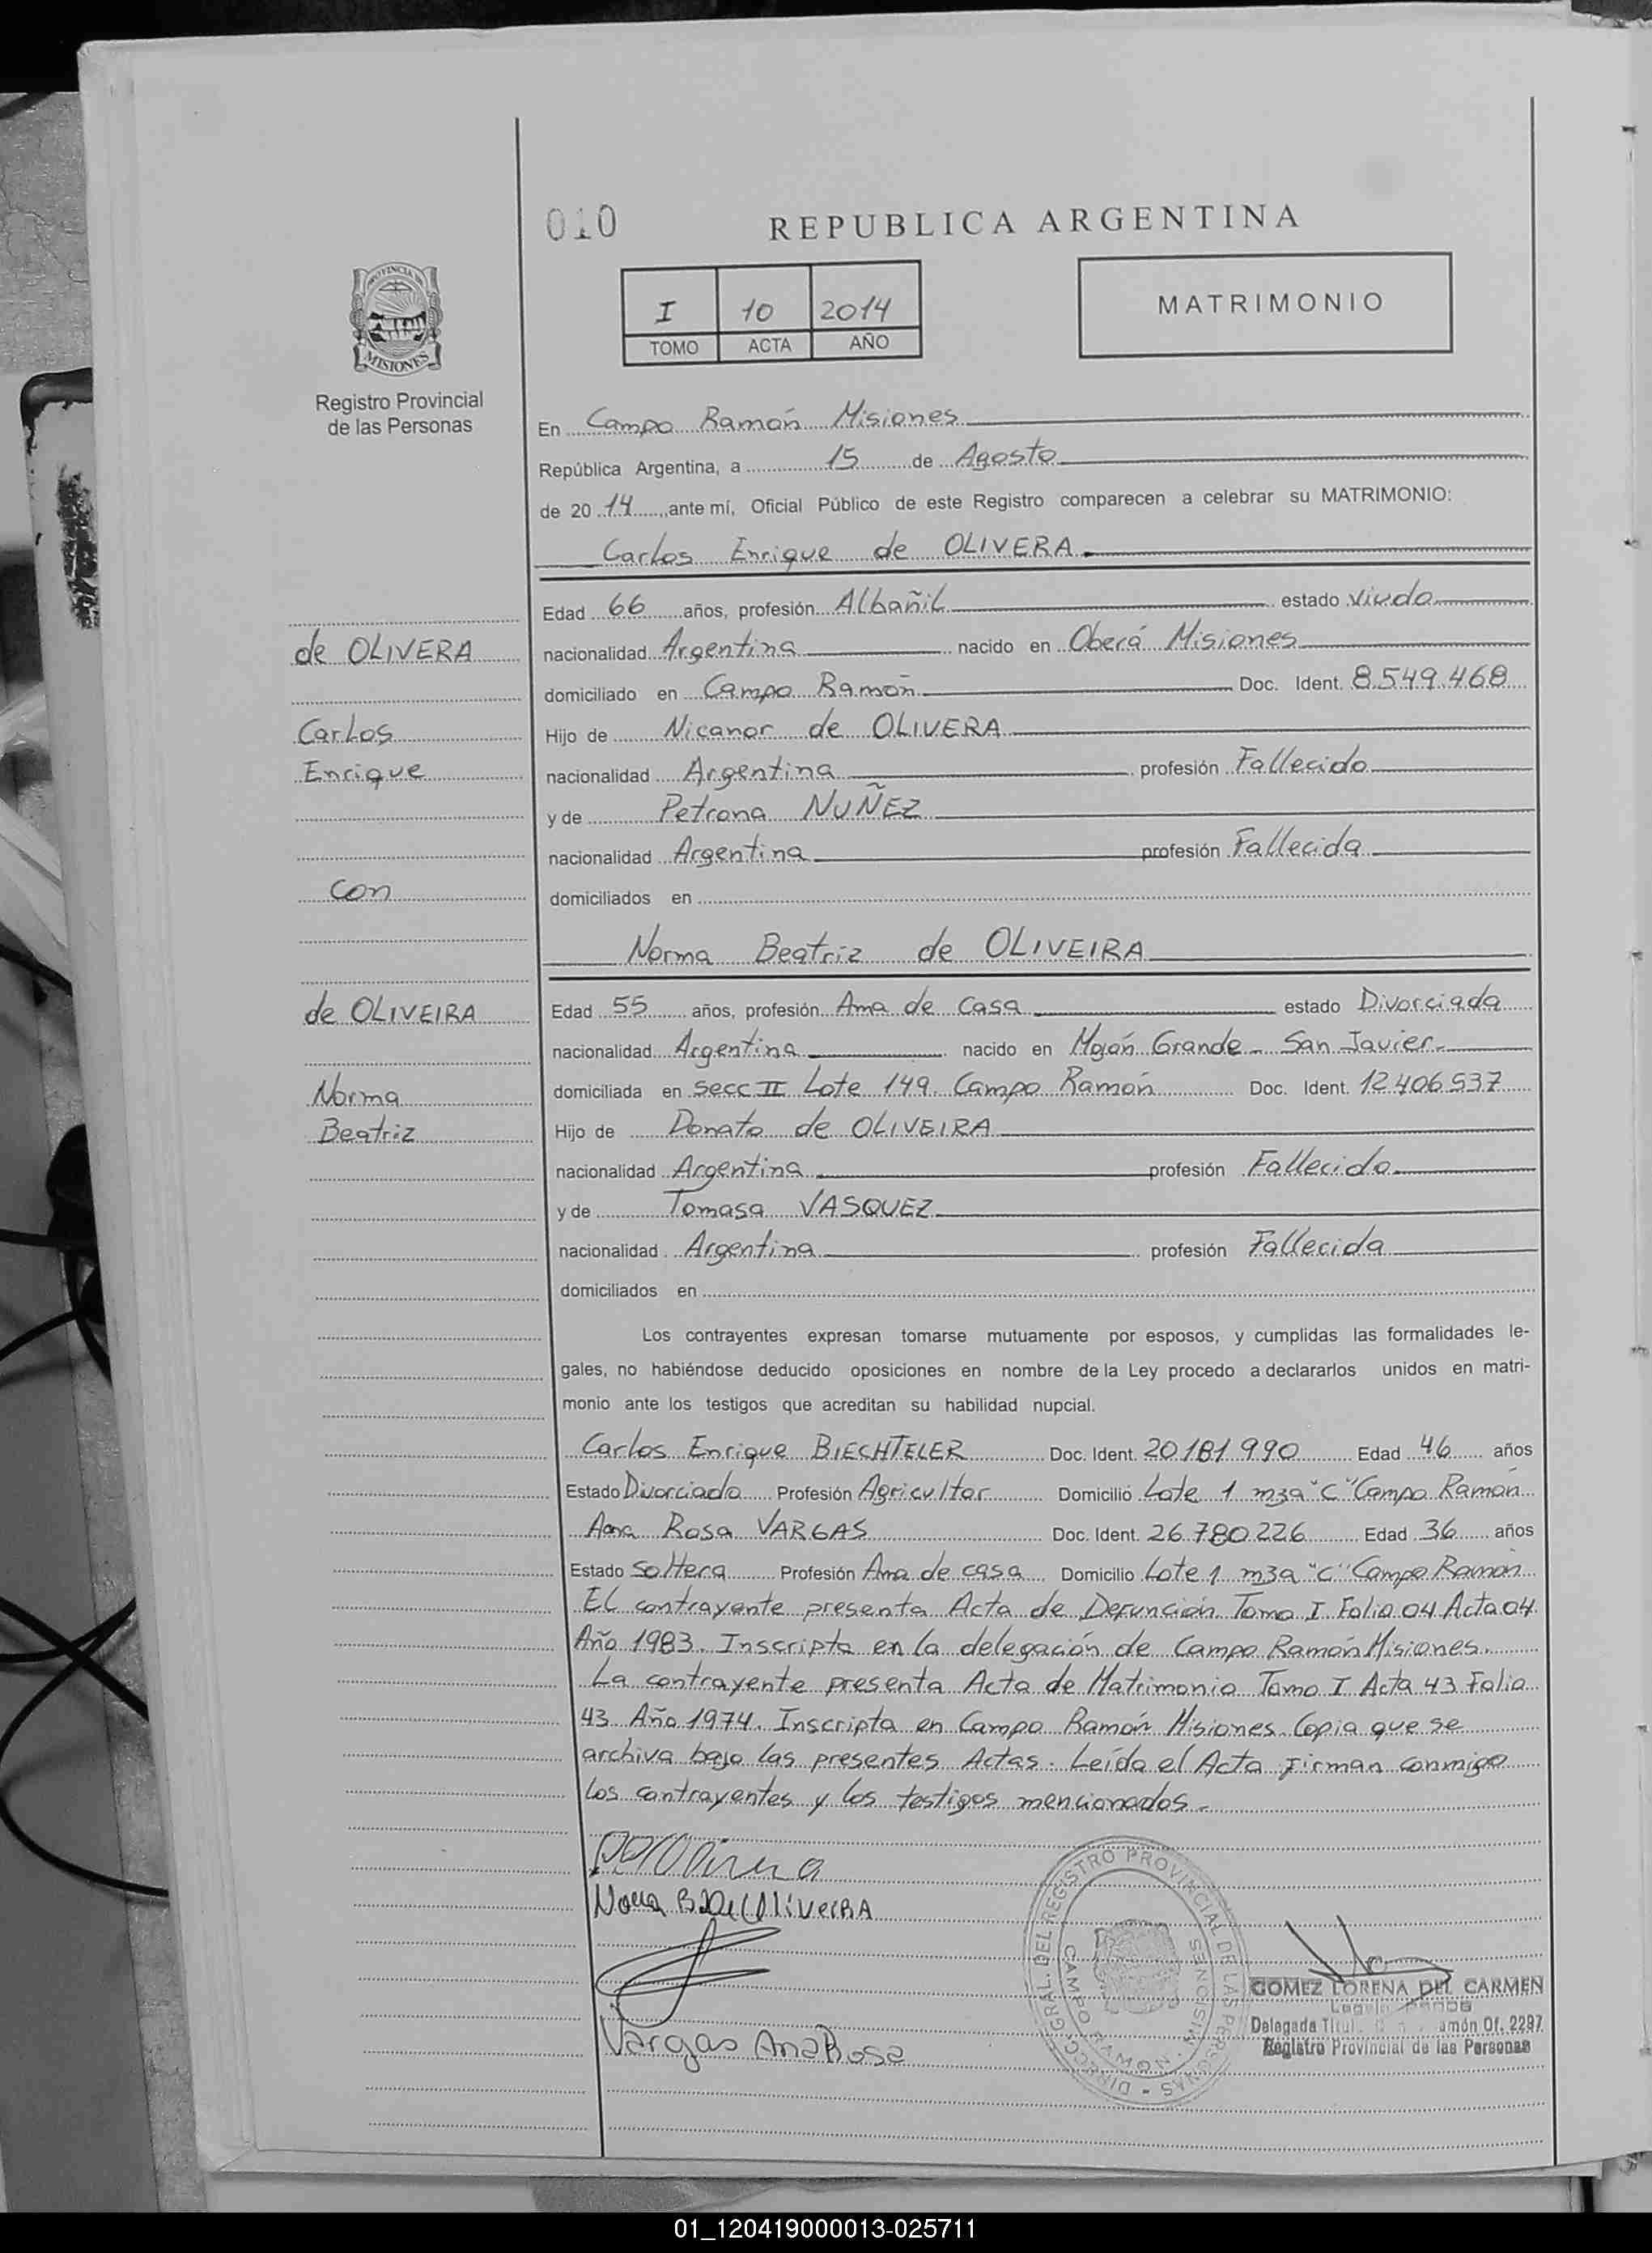 010
REPUBLICA ARGENTINA
I 10 2014
TOMO ACTA AÑO
MATRIMONIO
PROVINCIA DE
MISIONES
Registro Provincial
de las Personas
En Campo Ramón Misiones
República Argentina, a 15 de Agosto
de 2014 ante mí, Oficial Público de este Registro comparecen a celebrar su MATRIMONIO:
Carlos Enrique de OLIVERA
Edad 66 años, profesión Albañil estado viudo
de OLIVERA
nacionalidad Argentina nacido en Oberá Misiones
domiciliado en Campo Ramón Doc. Ident. 8.549.468
Carlos
Hijo de Nicanor de OLIVERA
Enrique
nacionalidad Argentina profesión Fallecido
y de Petrona NUÑEZ
nacionalidad Argentina profesión Fallecida
con
domiciliados en
Norma Beatriz de OLIVEIRA
de OLIVEIRA
Edad 55 años, profesión Ama de Casa estado Divorciada
nacionalidad Argentina nacido en Mojón Grande - San Javier-
Norma
domiciliada en Secc II Lote 149. Campo Ramón Doc. Ident. 12.406.537
Beatriz
Hijo de Donato de OLIVEIRA
nacionalidad Argentina profesión Fallecido
y de Tomasa VASQUEZ
nacionalidad Argentina profesión Fallecida
domiciliados en
Los contrayentes expresan tomarse mutuamente por esposos, y cumplidas las formalidades le-
gales, no habiéndose deducido oposiciones en nombre de la Ley procedo a declararlos unidos en matri-
monio ante los testigos que acreditan su habilidad nupcial.
Carlos Enrique BIECHTELER Doc. Ident. 20.181.990 Edad 46 años
Estado Divorciado Profesión Agricultor Domicilio Lote 1 mza "C" Campo Ramón
Ana Rosa VARGAS Doc. Ident. 26.780.226 Edad 36 años
Estado soltera Profesión Ama de casa Domicilio Lote 1 mza "C" Campo Ramón
El contrayente presenta Acta de Defunción Tomo I Folio 04 Acta 04
Año 1983. Inscripta en la delegación de Campo Ramón Misiones.
La contrayente presenta Acta de Matrimonio Tomo I Acta 43 Folio
43 Año 1974. Inscripta en Campo Ramón Misiones. Copia que se
archiva bajo las presentes Actas. Leída el Acta firman conmigo
los contrayentes y los testigos mencionados.-
Vargas Ana Rosa
DIRECC. GRAL. DEL REGISTRO PROVINCIAL DE LAS PERSONAS
CAMPO RAMON - MISIONES
GOMEZ LORENA DEL CARMEN
Delegada Of. 2297
Registro Provincial de las Personas
01_120419000013-025711